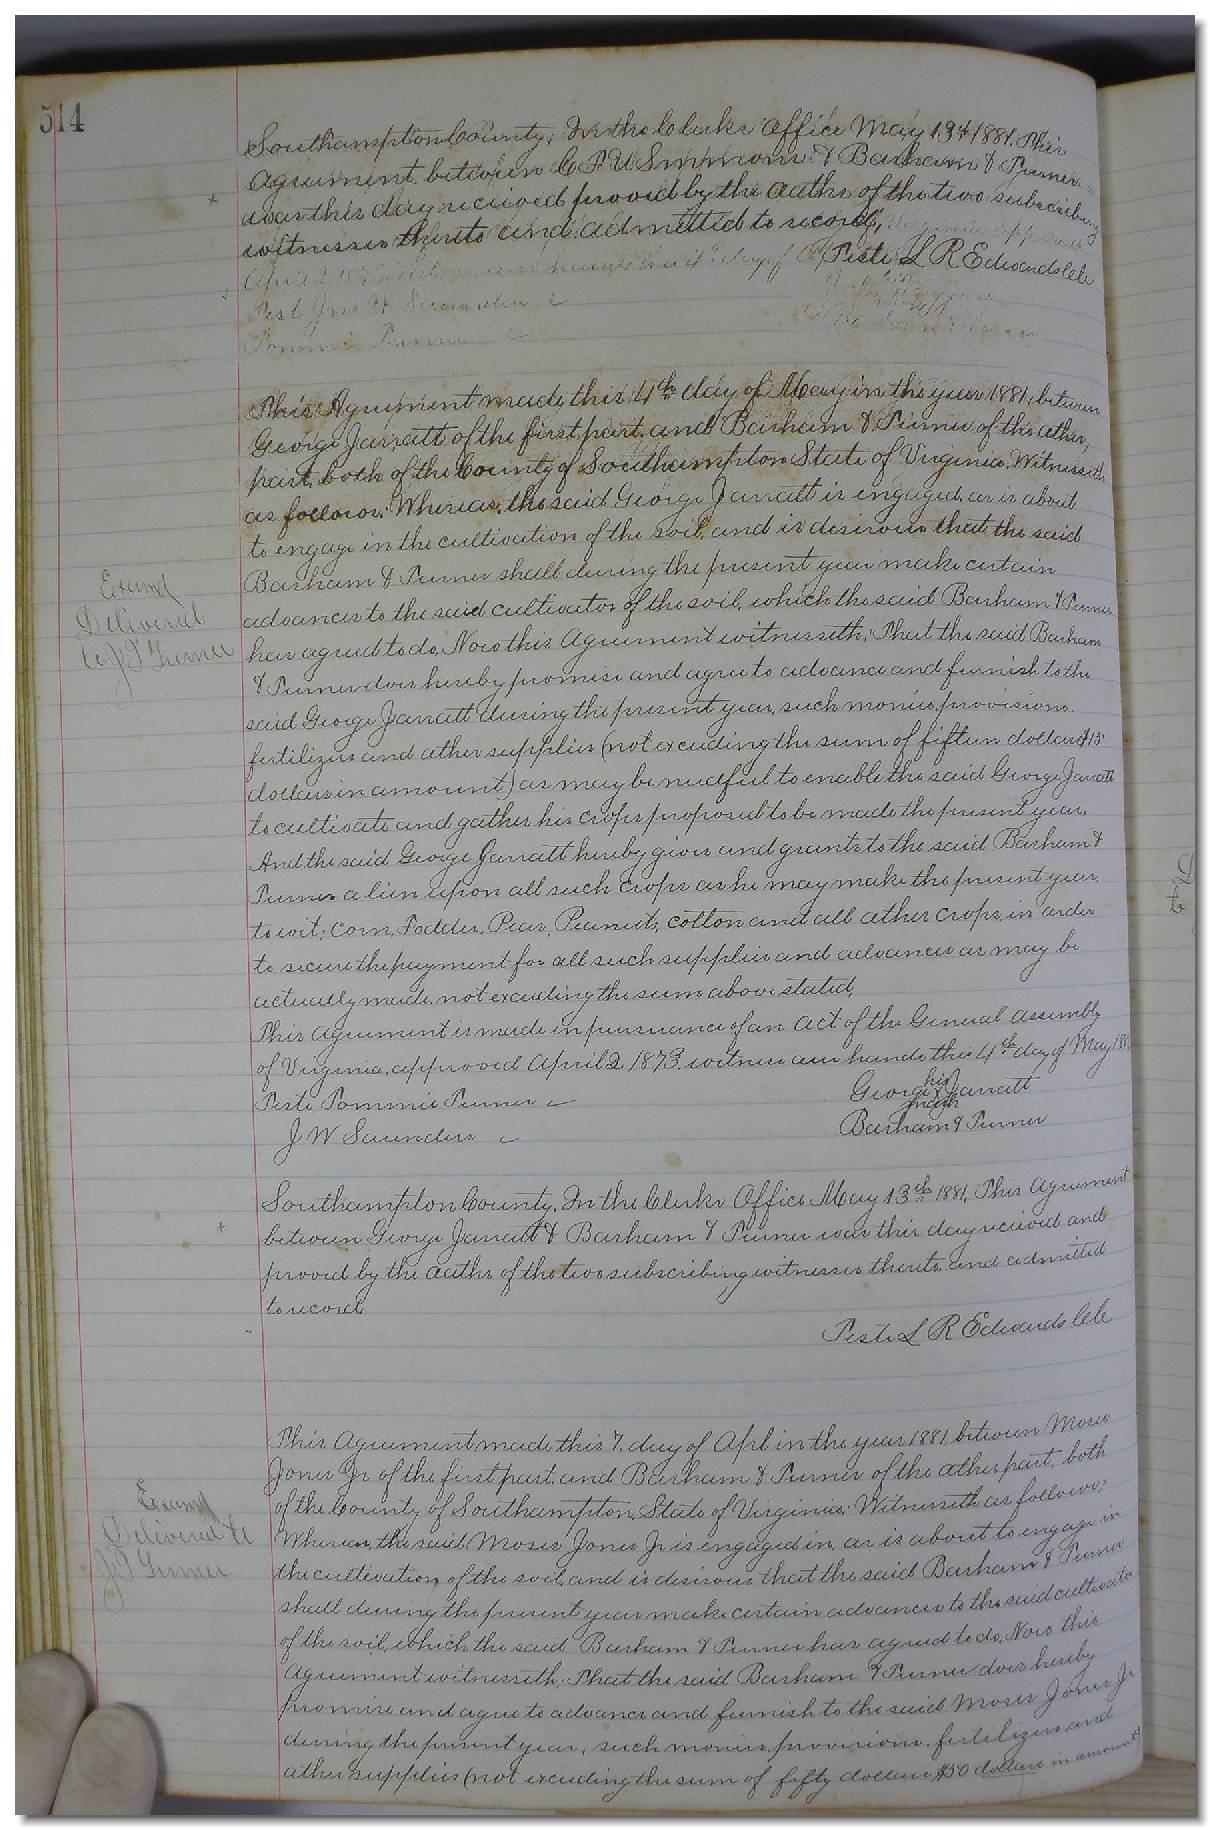 514
Southampton County, In the Clerks Office May 13th 1881. This
Agreement between C P U Simmons & Barham & Turner
was this day received proved by the oaths of the two subscribing
witnesses thereto and admitted to record,
April 2 1873 witness our hands this 4th day of
Teste L R Edwards Clk
Test Jno W Saunders
Tommie Turner
This Agreement made this 4th day of May in the year 1881, between
George Jarratt of the first part, and Barham & Turner of the other
part, both of the County of Southampton State of Virginia, Witnesseth
as follows: Whereas, the said George Jarratt is engaged, or is about
to engage in the cultivation of the soil, and is desirous that the said
Barham & Turner shall during the present year make certain
advances to the said cultivator of the soil, which the said Barham & Turner
has agreed to do, Now this Agreement witnesseth; That the said Barham
& Turner does hereby promise and agree to advance and furnish to the
said George Jarratt during the present year, such monies, provisions.
fertilizers and other supplies (not exceeding the sum of fifteen dollars $15
dollars in amount) as may be needful to enable the said George Jarratt
to cultivate and gather his crops proposed to be made the present year.
And the said George Jarratt hereby gives and grants to the said Barham &
Turner a lien upon all such crops as he may make the present year.
to wit; Corn, Fodder, Peas, Peanuts, cotton and all other crops, in order
to secure the payment for all such supplies and advances as may be
actually made, not exceeding the sum above stated,
This agreement is made in pursuance of an act of the General assembly
of Virginia, approved April 2 1873. witness our hands this 4th day of May 1881,
Teste Tommie Turner
George his x mark Jarratt
J W Saunders
Barham & Turner
Southampton County, In the Clerks Office May 13th 1881, This Agreement
between George Jarratt & Barham & Turner was this day received and
proved by the oaths of the two subscribing witnesses thereto, and admitted
to record,
Teste L R Edwards Clk
This Agreement made this 7. day of Apl in the year 1881 between Moses
Jones Jr of the first part, and Barham & Turner of the other part, both
of the County of Southampton, State of Virginia: Witnesseth as follows:
Whereas, the said Moses Jones Jr is engaged in, or is about to engage in
the cultivation of the soil, and is desirous that the said Barham & Turner
shall during the present year make certain advances to the said cultivator
of the soil, which the said Barham & Turner has agreed to do, Now this
Agreement witnesseth; That the said Barham & Turner does hereby
promise and agree to advance and furnish to the said Moses Jones Jr
during the present year, such monies, provisions, fertilizers and
other supplies (not exceeding the sum of fifty dollars $50 dollars in amount)
Examd
Delivered
to J T Turner
Examd
Delivered to
J T Turner